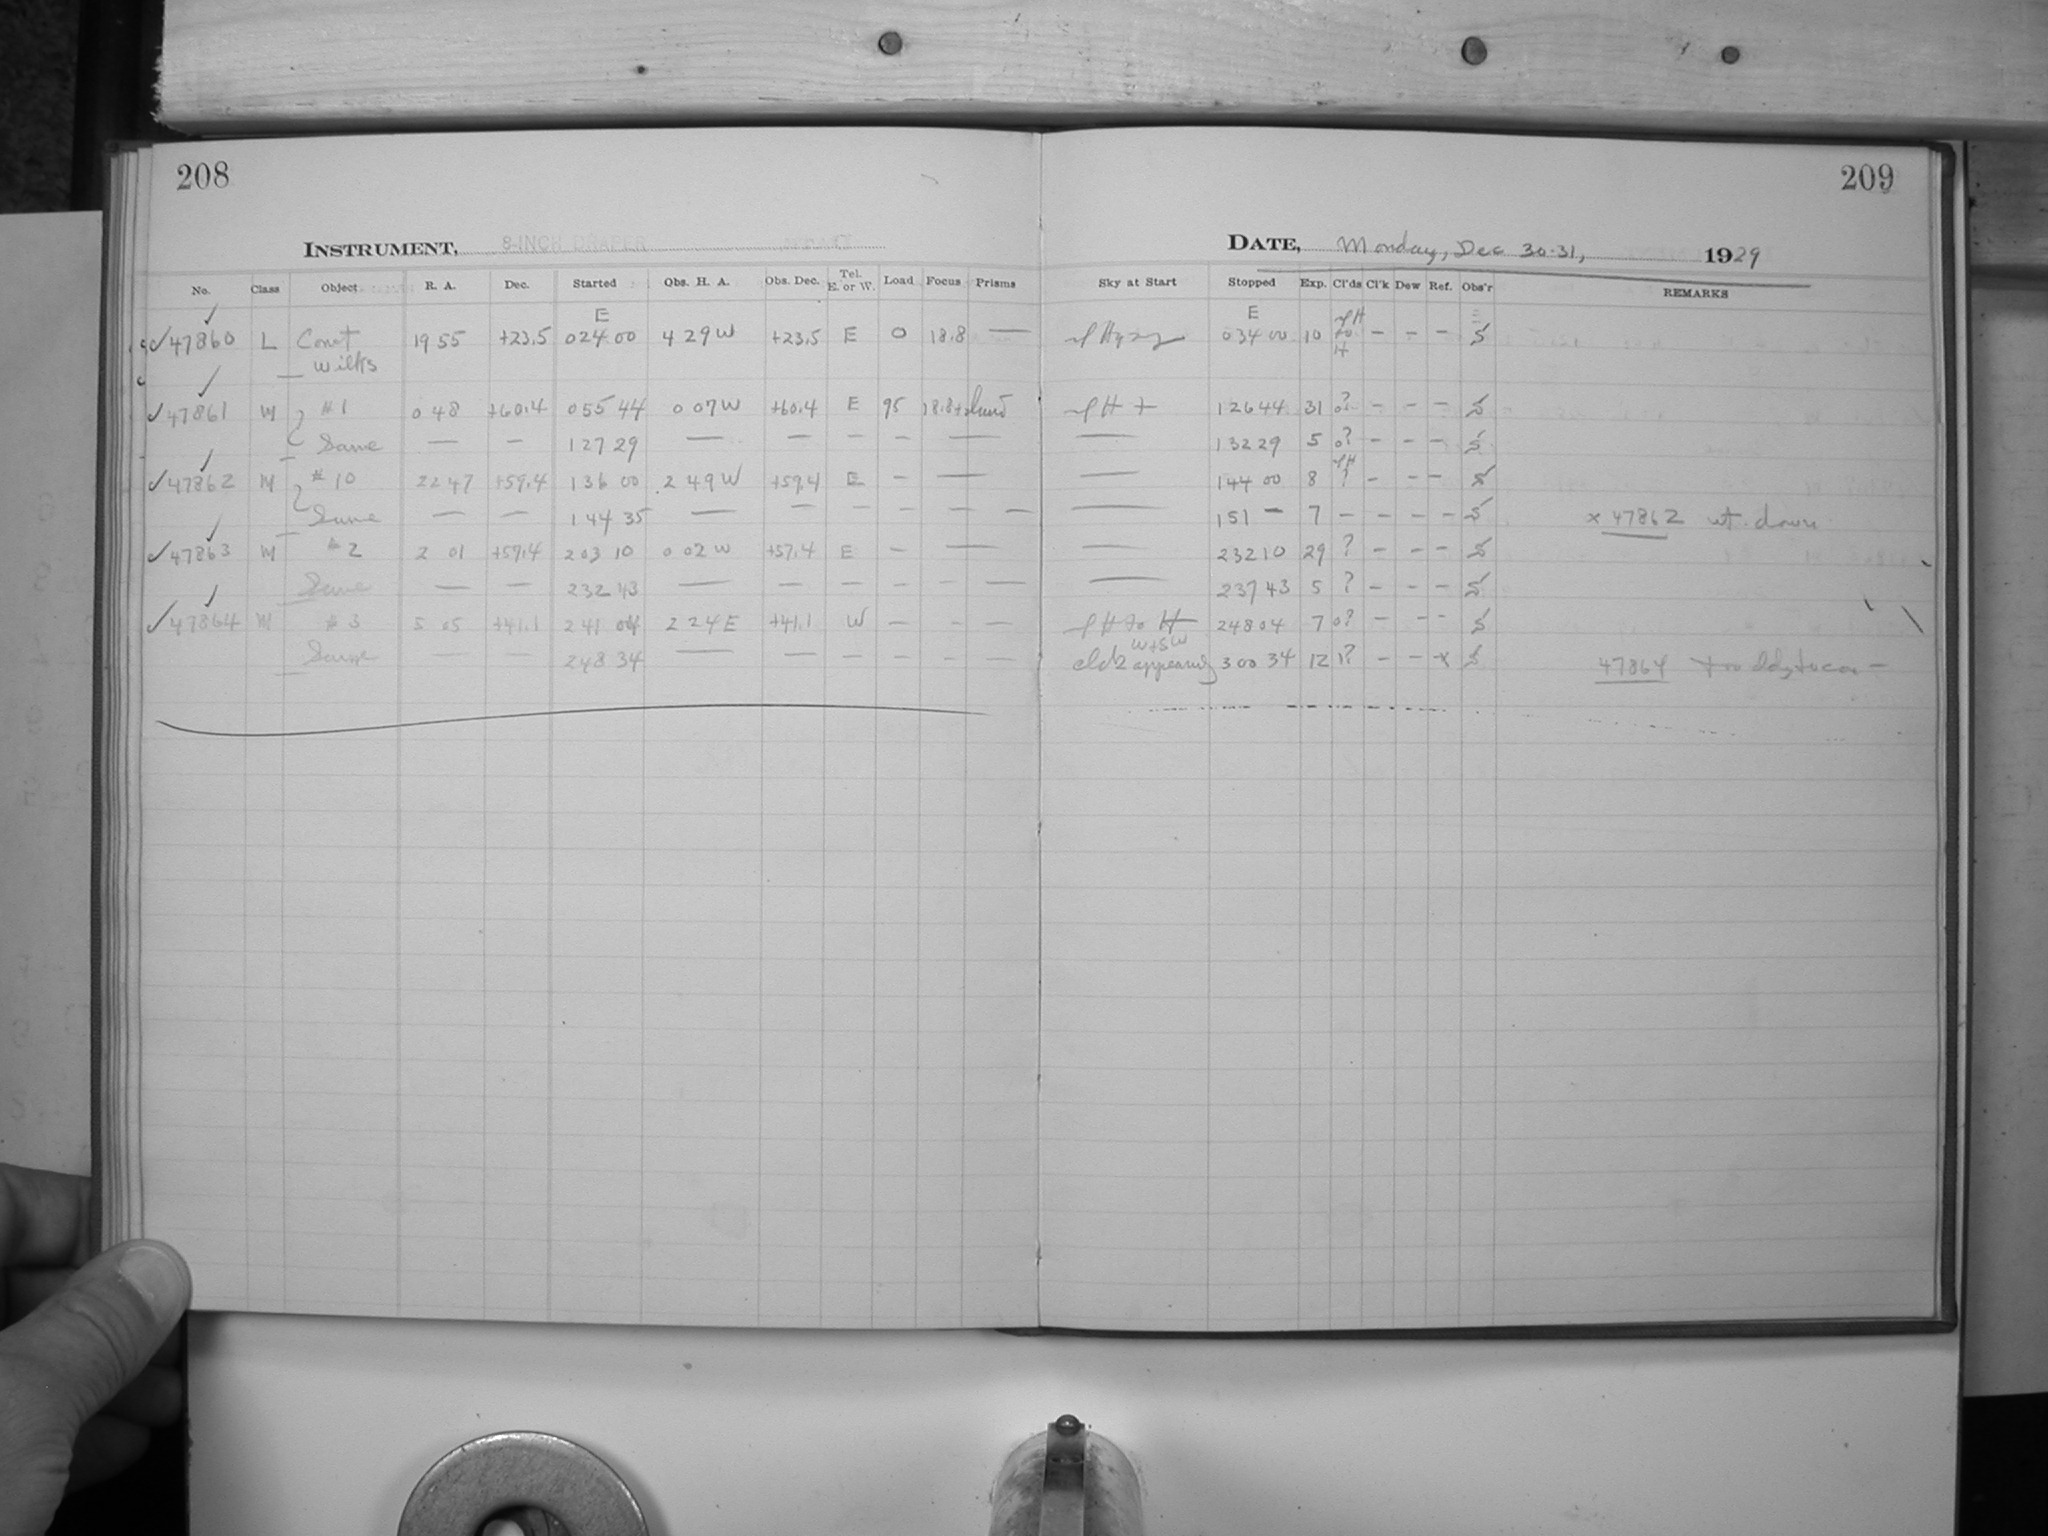 208
209
INSTRUMENT, 8-INCH DRAPER
DATE, Monday, Dec 30-31, 1929
No. Class Object R. A. Dec. Started Obs. H. A. Obs. Dec. Tel. E. or W. Load Focus Prisms Sky at Start Stopped Exp. Cl'ds Cl'k Dew Ref. Obs'r REMARKS
E E
✓47860 L Comet 19 55 +23.5 024 00 4 29 W +23.5 E 0 18.8 — 034 00 10 H to H – – – S
Wilks
✓47861 M #1 0 48 +60.4 055 44 0 07 W +60.4 E 95 18.8+ 12644 31 0? – – – S
Same — — 127 29 — — – – — — 13229 5 0? – – – S
✓47862 M #10 22 47 +59.4 136 00 2 49 W +59.4 E – — — 144 00 8 ? – – – S
Same — — 144 35 — — – – – — 151 – 7 – – – – S × 47862 wt. down
✓47863 M #2 2 01 +57.4 203 10 0 02 W +57.4 E – — — 23210 29 ? – – – S
Same — — 232 43 — — – – – — — 23743 5 ? – – – S
✓47864 M #3 5 05 +41.1 241 04 2 24 E +41.1 W – – — H to H 24804 7 0? – – – S
W+SW
Same — — 248 34 — — – – – — clds appearing 300 34 12 1? – – × S 47864 too cldy to con –